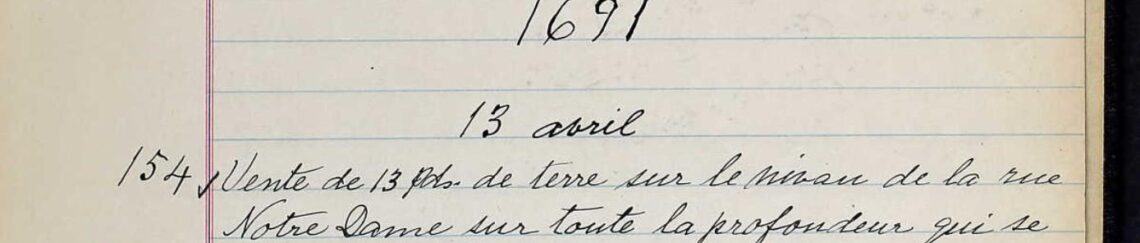 1691
13 avril
154 Vente de 13 pds. de terre sur le nivau de la rue
Notre Dame sur toute la profondeur qui se